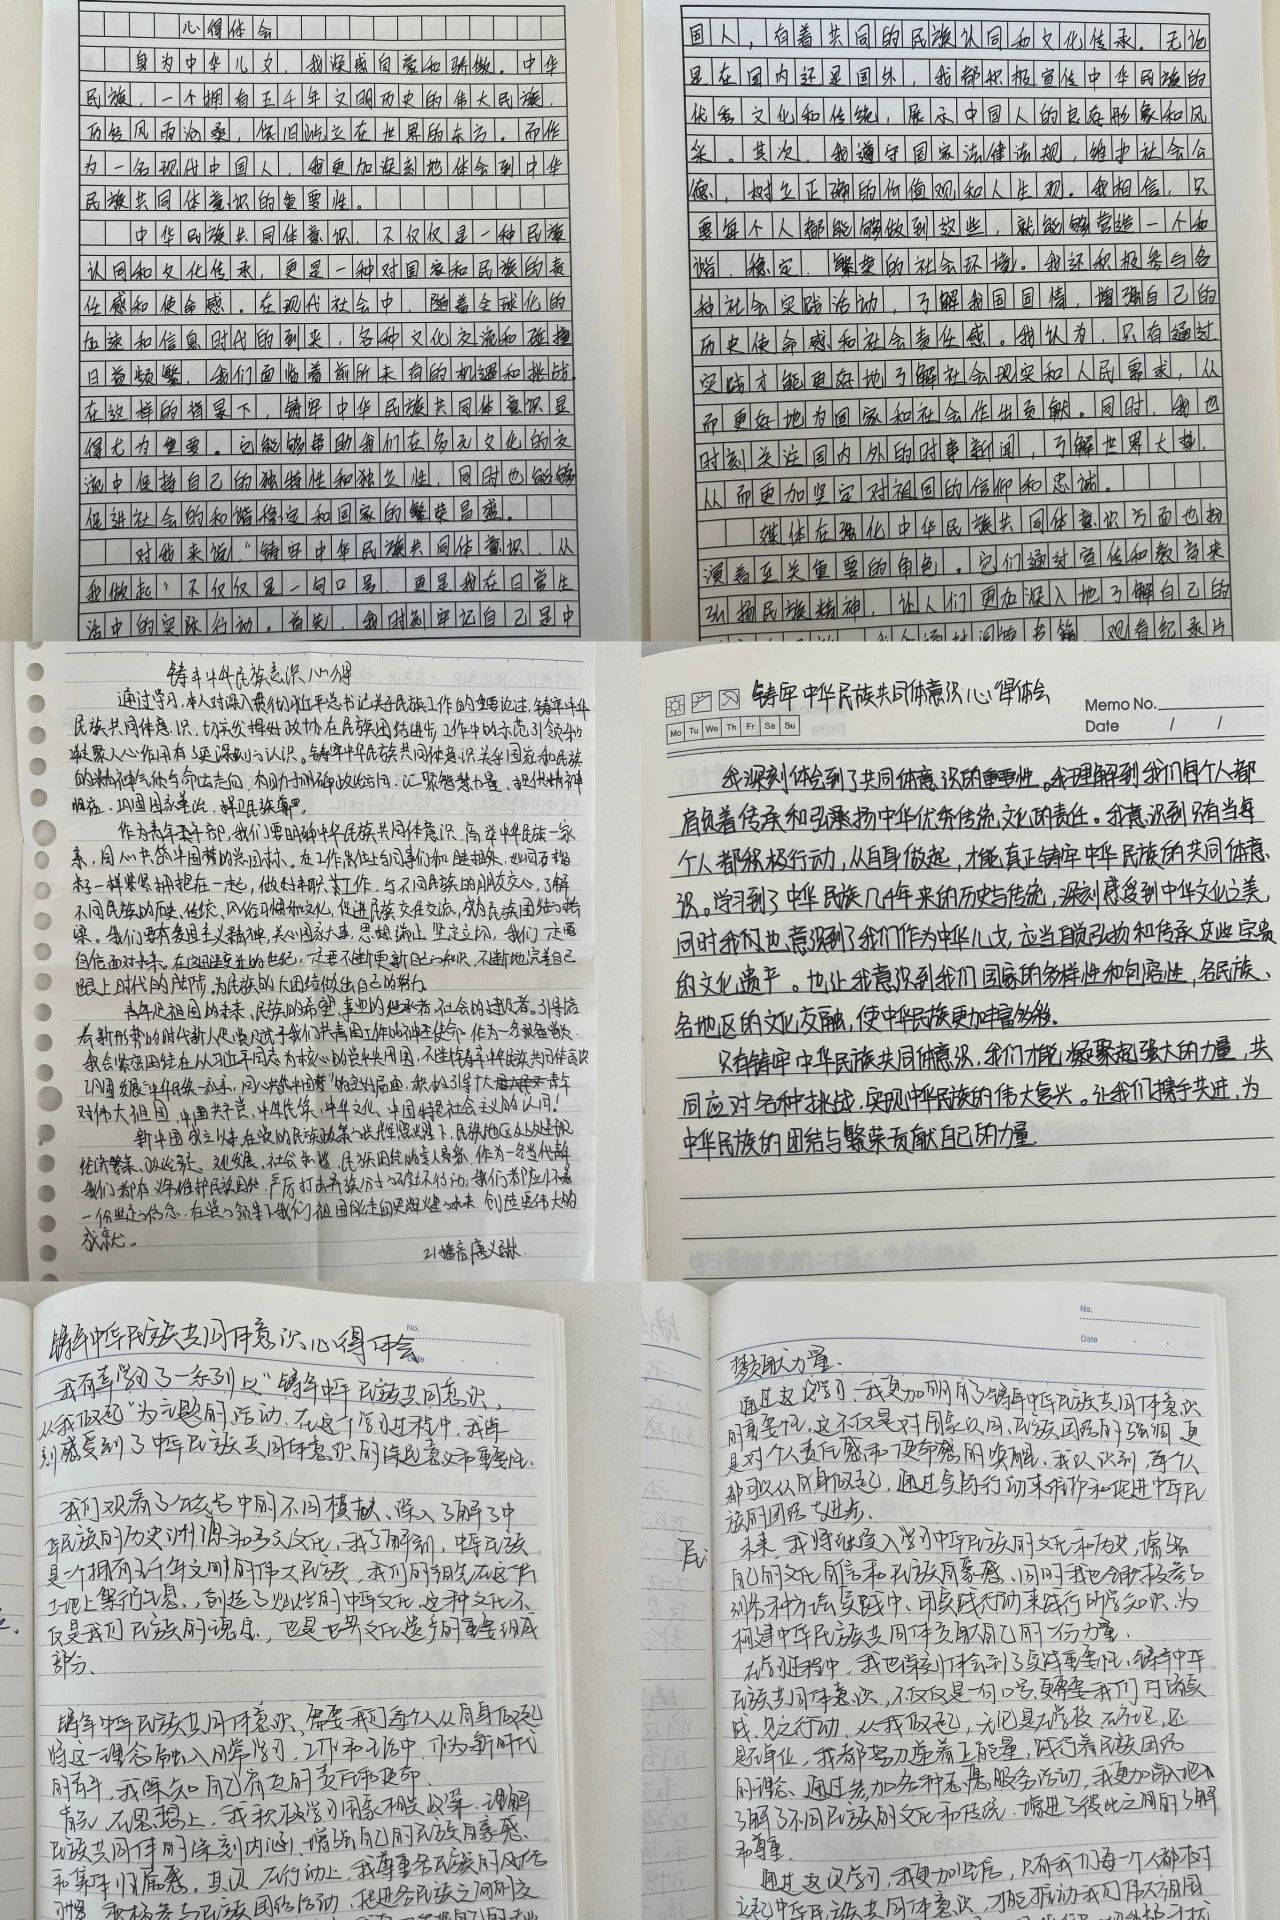 心得体会
身为中华儿女，我深感自豪和骄傲。中华
民族，一个拥有五千年文明历史的伟大民族，
历经风雨沧桑，依旧屹立在世界的东方。而作
为一名现代中国人，我更加深刻地体会到中华
民族共同体意识的重要性。
中华民族共同体意识，不仅仅是一种民族
认同和文化传承，更是一种对国家和民族的责
任感和使命感。在现代社会中，随着全球化的
加速和信息时代的到来，各种文化交流和碰撞
日益频繁，我们面临着前所未有的机遇和挑战。
在这样的背景下，铸牢中华民族共同体意识显
得尤为重要。它能够帮助我们在多元文化的交
流中保持自己的独特性和独立性，同时也能够
促进社会的和谐稳定和国家的繁荣昌盛。
对我来说，“铸牢中华民族共同体意识，从
我做起”不仅仅是一句口号，更是我在日常生
活中的实际行动。首先，我时刻牢记自己是中
国人，有着共同的民族认同和文化传承。无论
是在国内还是国外，我都积极宣传中华民族的
优秀文化和传统，展示中国人的良好形象和风
采。其次，我遵守国家法律法规，维护社会公
德，树立正确的价值观和人生观。我相信，只
要每个人都能够做到这些，就能够营造一个和
谐、稳定、繁荣的社会环境。我还积极参与各
种社会实践活动，了解我国国情，增强自己的
历史使命感和社会责任感。我认为，只有通过
实践才能更好地了解社会现实和人民需求，从
而更好地为国家和社会作出贡献。同时，我也
时刻关注国内外的时事新闻，了解世界大势，
从而更加坚定对祖国的信仰和忠诚。
媒体在强化中华民族共同体意识方面也扮
演着至关重要的角色。它们通过宣传和教育来
弘扬民族精神，让人们更加深入地了解自己的
铸牢中华民族意识心得
通过学习，本人对深入贯彻习近平总书记关于民族工作的重要论述，铸牢中华
民族共同体意识，切实发挥好政协在民族团结进步工作中的示范引领和
凝聚人心作用有了更深刻的认识。铸牢中华民族共同体意识关乎国家和民族
的精神气质与命运走向，有助于明确政治方向，汇聚智慧力量，提供精神
归宿，巩固国家善治，捍卫民族尊严。
作为青年，我们要明确中华民族共同体意识，高举中华民族一家
亲，同心共筑中国梦的共同目标。在工作岗位上与同事们和睦相处，如同石榴
籽一样紧紧拥抱在一起，做好本职工作，与不同民族的朋友交心，了解
不同民族的历史、传统、风俗习惯和文化，促进民族交往交流，成为民族团结的桥
梁。我们要有爱国主义精神，关心国家大事，思想端正，坚定立场，我们一定要
自信面对未来。在这迅速变迁的世纪，一定要不断更新自己的知识，不断地完善自己
跟上时代的脚步，为民族的大团结做出自己的努力。
青年是祖国的未来，民族的希望，事业的继承者，社会的建设者。引导培
我会紧密团结在以习近平同志为核心的党中央周围，不断铸牢中华民族共同体意识
巩固发展“中华民族一家亲，同心共筑中国梦”的良好局面，积极引导广大青年
对伟大祖国、中国共产党、中华民族、中华文化、中国特色社会主义的认同！
新中国成立以来，在党的民族政策的光辉照耀下，民族地区处处呈现
经济繁荣、政治稳定、文化发展、社会和谐、民族团结的喜人景象，作为一名当代青年
我们都有义务维护民族团结，严厉打击民族分裂的不行动，我们都应怀着
一份坚定的信念，在党的领导下我们祖国能走向更辉煌的未来，创造更伟大的
成就。
铸牢中华民族共同体意识心得体会
Memo No.
Mo Tu We Th Fr Sa Su
Date / /
我深刻体会到了共同体意识的重要性。我理解到我们每个人都
肩负着传承和弘扬中华优秀传统文化的责任。我意识到只有当每
个人都积极行动，从自身做起，才能真正铸牢中华民族的共同体意
识。学习到了中华民族几千年来的历史与传统，深刻感受到中华文化之美，
同时我们也意识到了我们作为中华儿女，应当自觉弘扬和传承这些宝贵
的文化遗产。也让我意识到我们国家的多样性和包容性，各民族、
各地区的文化交融，使中华民族更加丰富多彩。
只有铸牢中华民族共同体意识，我们才能凝聚起强大的力量，共
同应对各种挑战，实现中华民族的伟大复兴。让我们携手共进，为
中华民族的团结与繁荣贡献自己的力量
No.
Date
铸牢中华民族共同体意识心得体会
我有幸学习了一系列以“铸牢中华民族共同意识，
从我做起”为主题的活动，在这个学习过程中，我深
刻感受到了中华民族共同体意识的深远意义和重要性。
我们观看了公众号中的不同板块，深入了解了中
华民族的历史渊源和多元文化，我了解到，中华民族
是一个拥有五千年文明的伟大民族，我们的祖先在这片
土地上繁衍生息，创造了灿烂的中华文化，这种文化不
仅是我们民族的瑰宝，也是世界文化遗产的重要组成
部分。
铸牢中华民族共同体意识，需要我们每个人从自身做起
将这一理念融入日常学习，工作和生活中，作为新时代
的青年，我深知自己肩负的责任和使命
首先，在思想上，我积极学习国家相关政策，理解
民族共同体的深刻内涵，增强自己的民族自豪感
和集体归属感。其次，在行动上，我尊重各民族的风俗
习惯，积极参与民族团结活动，促进各民族之间的交
No.
Date
贡献力量
通过这次学习，我更加明白了铸牢中华民族共同体意识
的重要性，这不仅是对国家认同、民族团结的强调，更
是对个人责任感和使命感的唤醒，我认识到，每个人
都可以从自身做起，通过实际行动来维护和促进中华民
族的团结与进步。
未来，我将继续深入学习中华民族的文化和历史，增强
自己的文化自信和民族自豪感，同时我也会积极参与
到各种社会实践中，用实际行动来践行所学知识，为
构建中华民族共同体贡献自己的一份力量。
在学习过程中，我也深刻体会到了实践重要性，铸牢中华
民族共同体意识，不仅仅是一句口号，更需要我们付诸实
践，见之行动，从我做起，无论是在学校、在家里，还
是在单位，我都努力传递着正能量，践行着民族团结
的理念，通过参加各种志愿服务活动，我更加深入地
了解了不同民族的文化和传统，增进了彼此之间的了解
和尊重
通过这次学习，我更加坚信，只有我们每一个人都树
立起中华民族共同体意识，才能推动我们伟大祖国